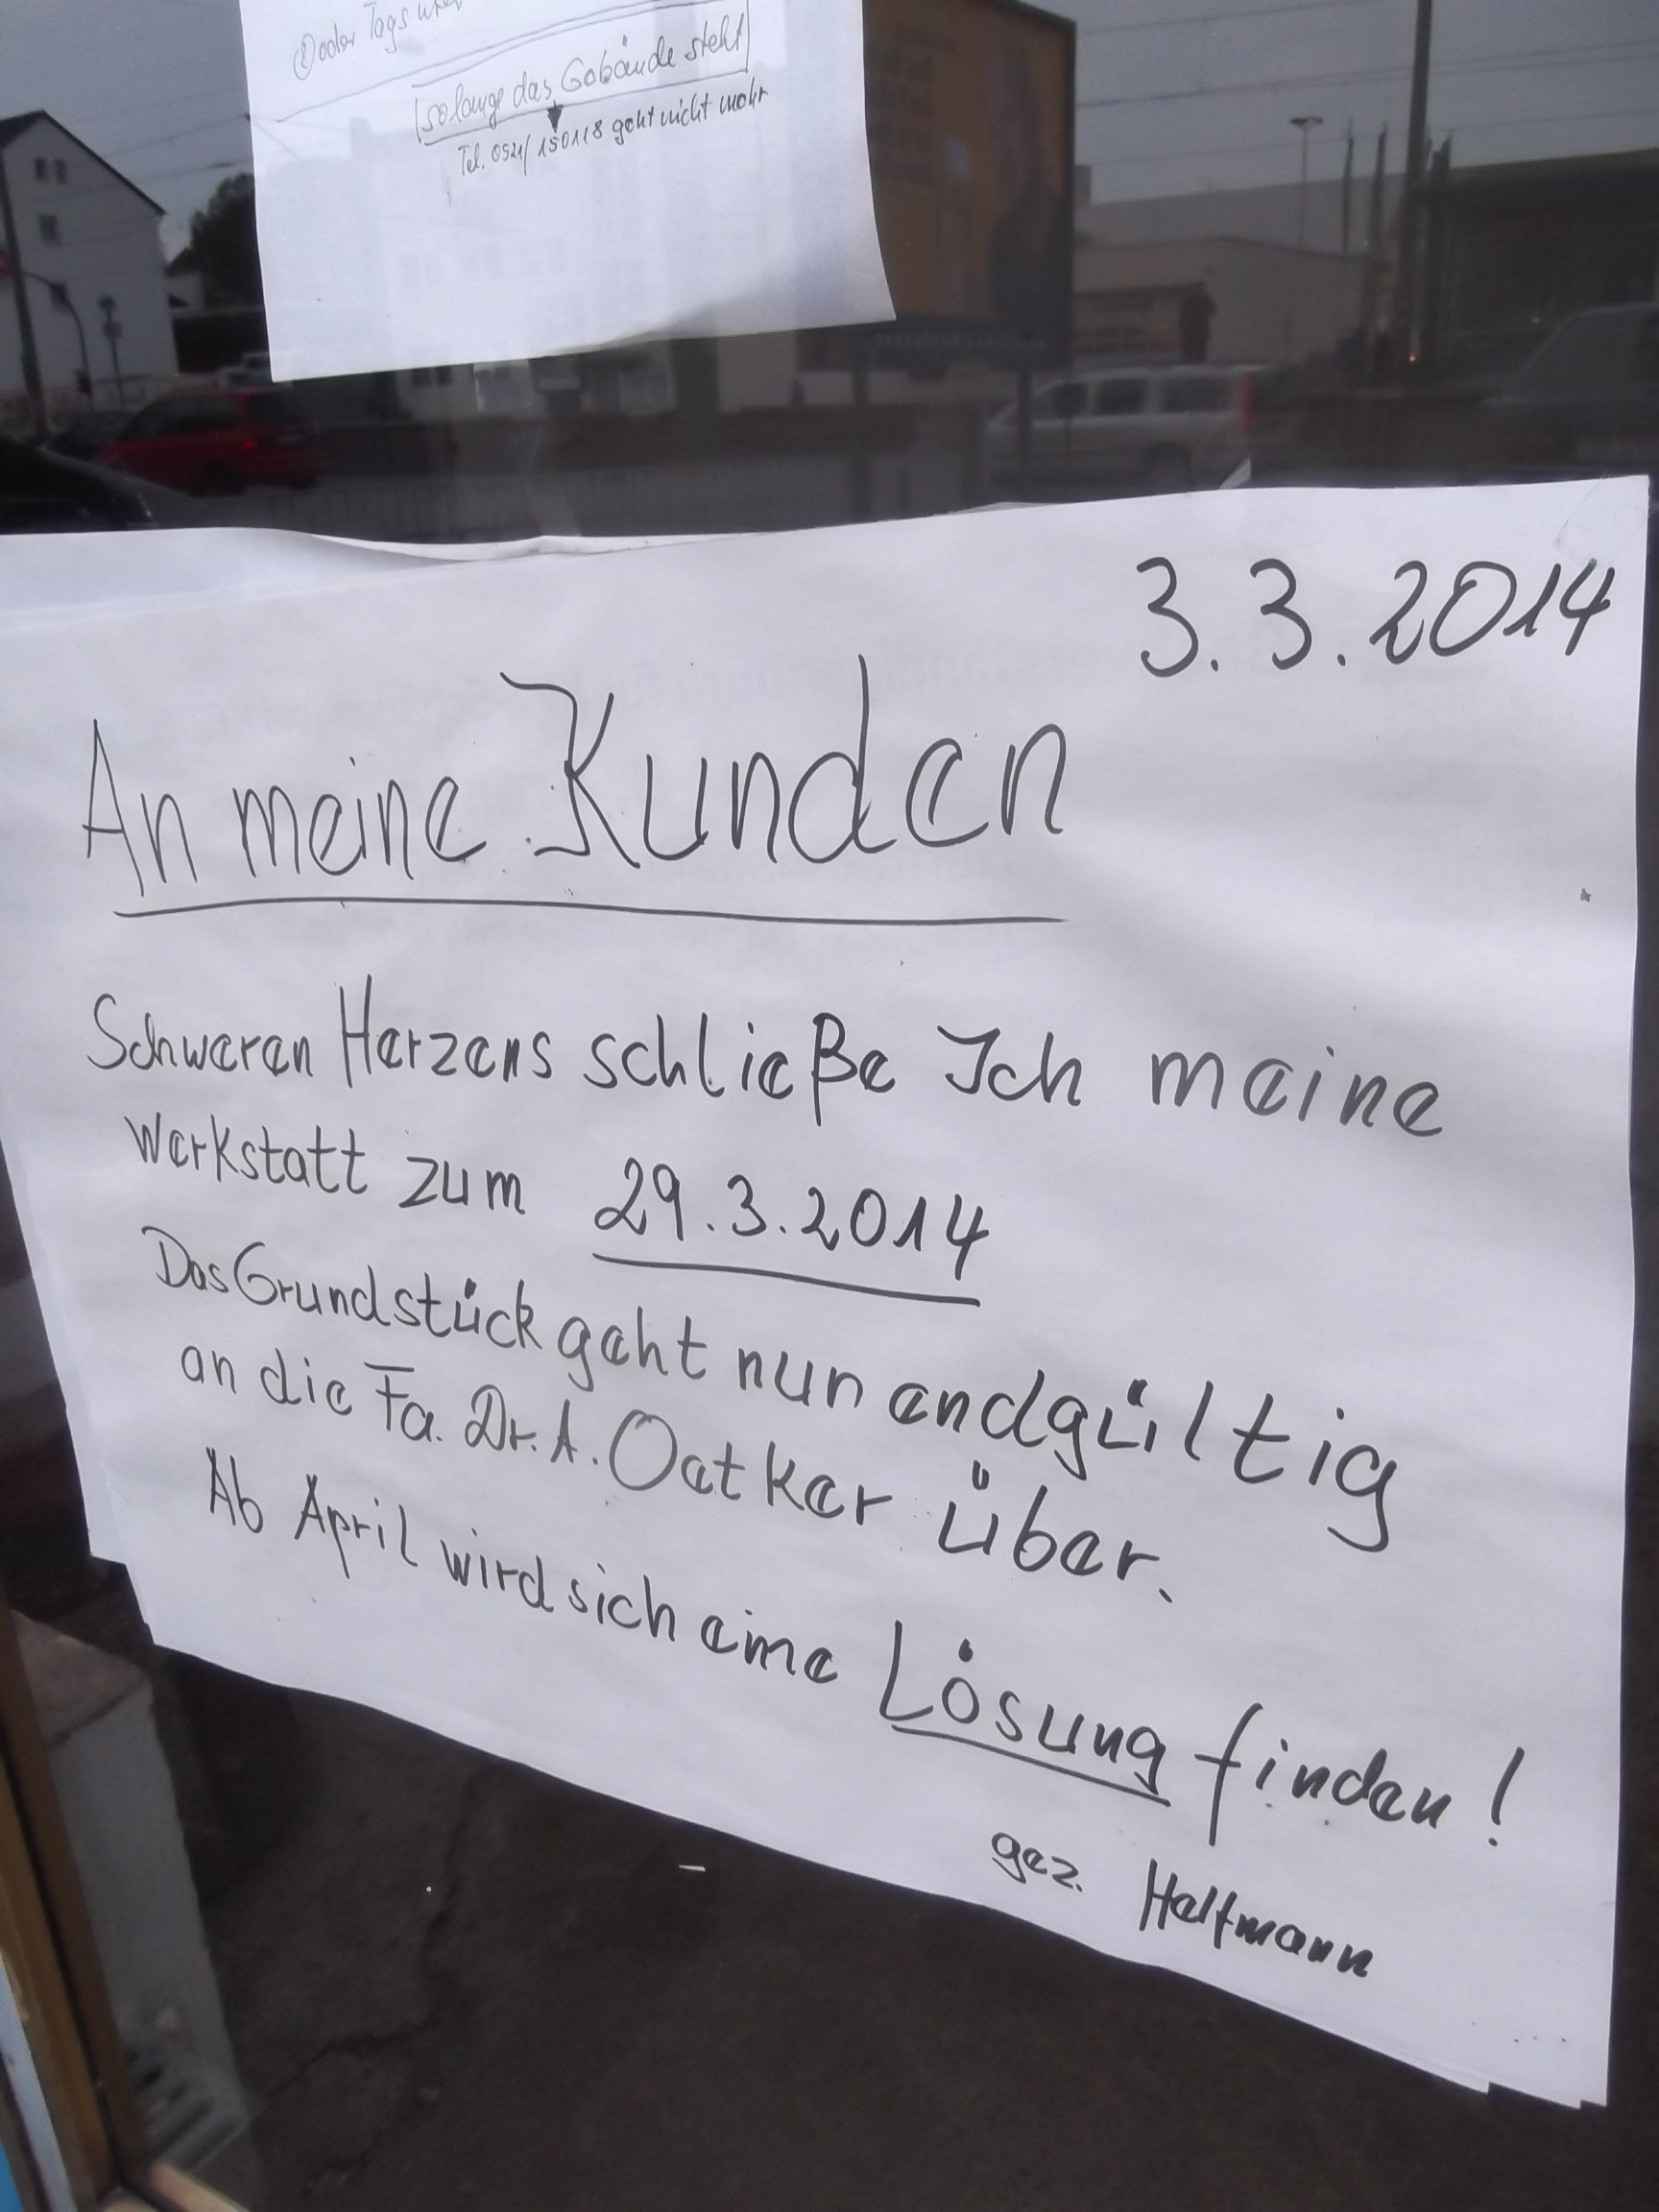 ② oder Tags
solange das Gebäude steht
Tel. 0521/ 150118 geht nicht mehr
3.3.2014
An meine Kunden
Schweren Herzens schließe Ich meine
Werkstatt zum 29.3.2014
Das Grundstück geht nun endgültig
an die Fa. Dr. A. Oetker über.
Ab April wird sich eine Lösung finden!
gez. Helfmann